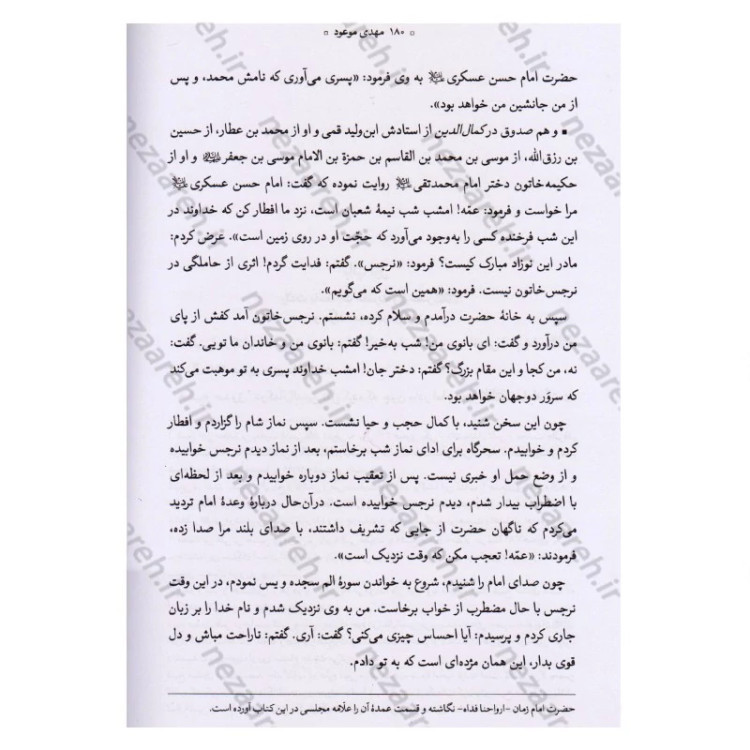 ۱۸۰ مهدی موعود
حضرت امام حسن عسکری به وی فرمود: «پسری می‌آوری که نامش محمد، و پس
از من جانشین من خواهد بود».
▪ و هم صدوق در کمال‌الدین از استادش ابن‌ولید قمی و او از محمد بن عطار، از حسین
بن رزق‌الله، از موسی بن محمد بن القاسم بن حمزة بن الامام موسی بن جعفر و او از
حکیمه‌خاتون دختر امام محمدتقی روایت نموده که گفت: امام حسن عسکری
مرا خواست و فرمود: عمّه! امشب شب نیمۀ شعبان است، نزد ما افطار کن که خداوند در
این شب فرخنده کسی را به‌وجود می‌آورد که حجّت او در روی زمین است». عرض کردم:
مادر این نوزاد مبارک کیست؟ فرمود: «نرجس». گفتم: فدایت گردم! اثری از حاملگی در
نرجس‌خاتون نیست. فرمود: «همین است که می‌گویم».
سپس به خانۀ حضرت درآمدم و سلام کرده، نشستم. نرجس‌خاتون آمد کفش از پای
من درآورد و گفت: ای بانوی من! شب به‌خیر! گفتم: بانوی من و خاندان ما تویی. گفت:
نه، من کجا و این مقام بزرگ؟ گفتم: دختر جان! امشب خداوند پسری به تو موهبت می‌کند
که سرور دوجهان خواهد بود.
چون این سخن شنید، با کمال حجب و حیا نشست. سپس نماز شام را گزاردم و افطار
کردم و خوابیدم. سحرگاه برای ادای نماز شب برخاستم، بعد از نماز دیدم نرجس خوابیده
و از وضع حمل او خبری نیست. پس از تعقیب نماز دوباره خوابیدم و بعد از لحظه‌ای
با اضطراب بیدار شدم، دیدم نرجس خوابیده است. درآن‌حال دربارۀ وعدۀ امام تردید
می‌کردم که ناگهان حضرت از جایی که تشریف داشتند، با صدای بلند مرا صدا زده،
فرمودند: «عمّه! تعجب مکن که وقت نزدیک است».
چون صدای امام را شنیدم، شروع به خواندن سورۀ الم سجده و یس نمودم، در این وقت
نرجس با حال مضطرب از خواب برخاست. من به وی نزدیک شدم و نام خدا را بر زبان
جاری کردم و پرسیدم: آیا احساس چیزی می‌کنی؟ گفت: آری. گفتم: ناراحت مباش و دل
قوی بدار، این همان مژده‌ای است که به تو دادم.
حضرت امام زمان -ارواحنا فداه- نگاشته و قسمت عمدۀ آن را علّامه مجلسی در این کتاب آورده است.
nezaareh.ir